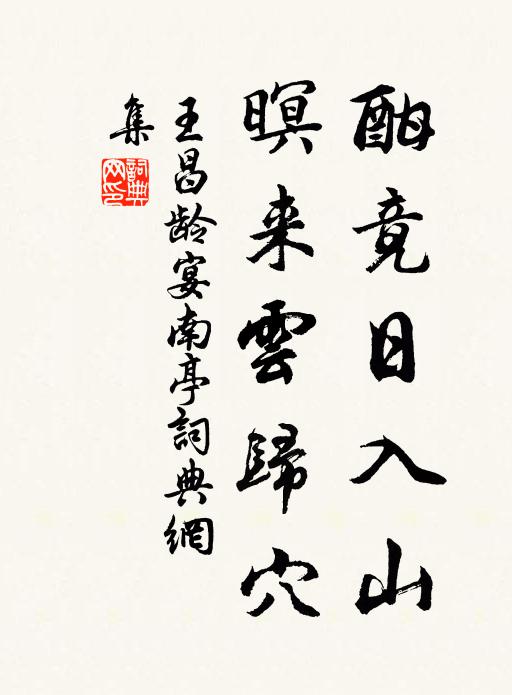 酣竟日入山
暝来雲歸穴
王昌龄宴南亭詞典網
集
詞典
网印